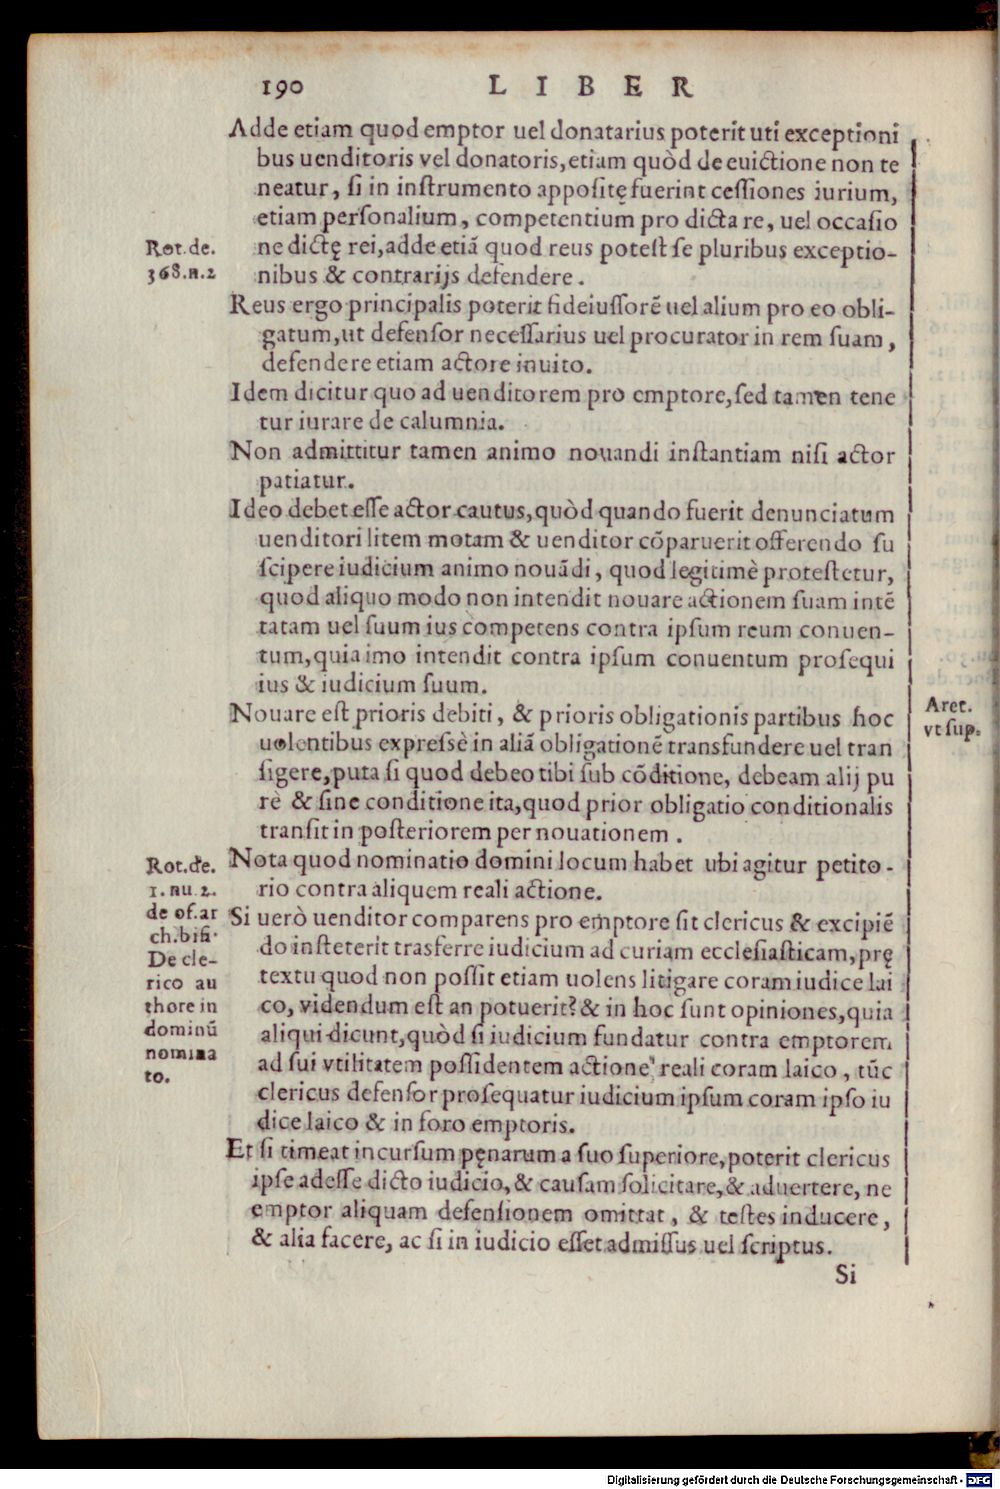 190 LIBER
Adde etiam quod emptor uel donatarius poterit uti exceptioni
bus uenditoris vel donatoris, etiam quòd de euictione non te
neatur, si in instrumento appositę fuerint cessiones iurium,
etiam personalium, competentium pro dicta re, uel occasio
Rot. de.
368. n. 2
ne dictę rei, adde etiã quod reus potest se pluribus exceptio-
nibus & contrarijs defendere.
Reus ergo principalis poterit fideiussorẽ uel alium pro eo obli-
gatum, ut defensor necessarius uel procurator in rem suam,
defendere etiam actore inuito.
Idem dicitur quo ad uenditorem pro emptore, sed tamen tene
tur iurare de calumnia.
Non admittitur tamen animo nouandi instantiam nisi actor
patiatur.
Ideo debet esse actor cautus, quòd quando fuerit denunciatum
uenditori litem motam & uenditor cõparuerit offerendo su
scipere iudicium animo nouãdi, quod legitimè protestetur,
quod aliquo modo non intendit nouare actionem suam intẽ
tatam uel suum ius competens contra ipsum reum conuen-
tum, quia imo intendit contra ipsum conuentum prosequi
ius & iudicium suum.
Aret.
vt sup.
Nouare est prioris debiti, & prioris obligationis partibus hoc
uolentibus expressè in aliã obligationẽ transfundere uel tran
sigere, puta si quod debeo tibi sub cõditione, debeam alij pu
rè & sine conditione ita, quod prior obligatio conditionalis
transit in posteriorem per nouationem.
Rot. de.
1. nu. 2.
de of. ar
ch. bisi.
De cle-
rico au
thore in
dominũ
nomina
to.
Nota quod nominatio domini locum habet ubi agitur petito-
rio contra aliquem reali actione.
Si uerò uenditor comparens pro emptore sit clericus & excipiẽ
do insteterit trasferre iudicium ad curiam ecclesiasticam, prę
textu quod non possit etiam uolens litigare coram iudice lai
co, videndum est an potuerit? & in hoc sunt opiniones, quia
aliqui dicunt, quòd si iudicium fundatur contra emptorem
ad sui vtilitatem possidentem actione reali coram laico, tũc
clericus defensor prosequatur iudicium ipsum coram ipso iu
dice laico & in foro emptoris.
Et si timeat incursum pęnarum a suo superiore, poterit clericus
ipse adesse dicto iudicio, & causam solicitare, & aduertere, ne
emptor aliquam defensionem omittat, & testes inducere,
& alia facere, ac si in iudicio esset admissus uel scriptus.
Si
Digitalisierung gefördert durch die Deutsche Forschungsgemeinschaft - DFG